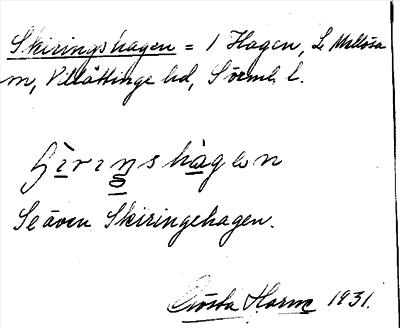 Skiringshagen = 1 Hagen, L. Mellösa
m, Villåttinge hd, Sörml. l.
Se även Skiringehagen.
Gösta Harm 1931.